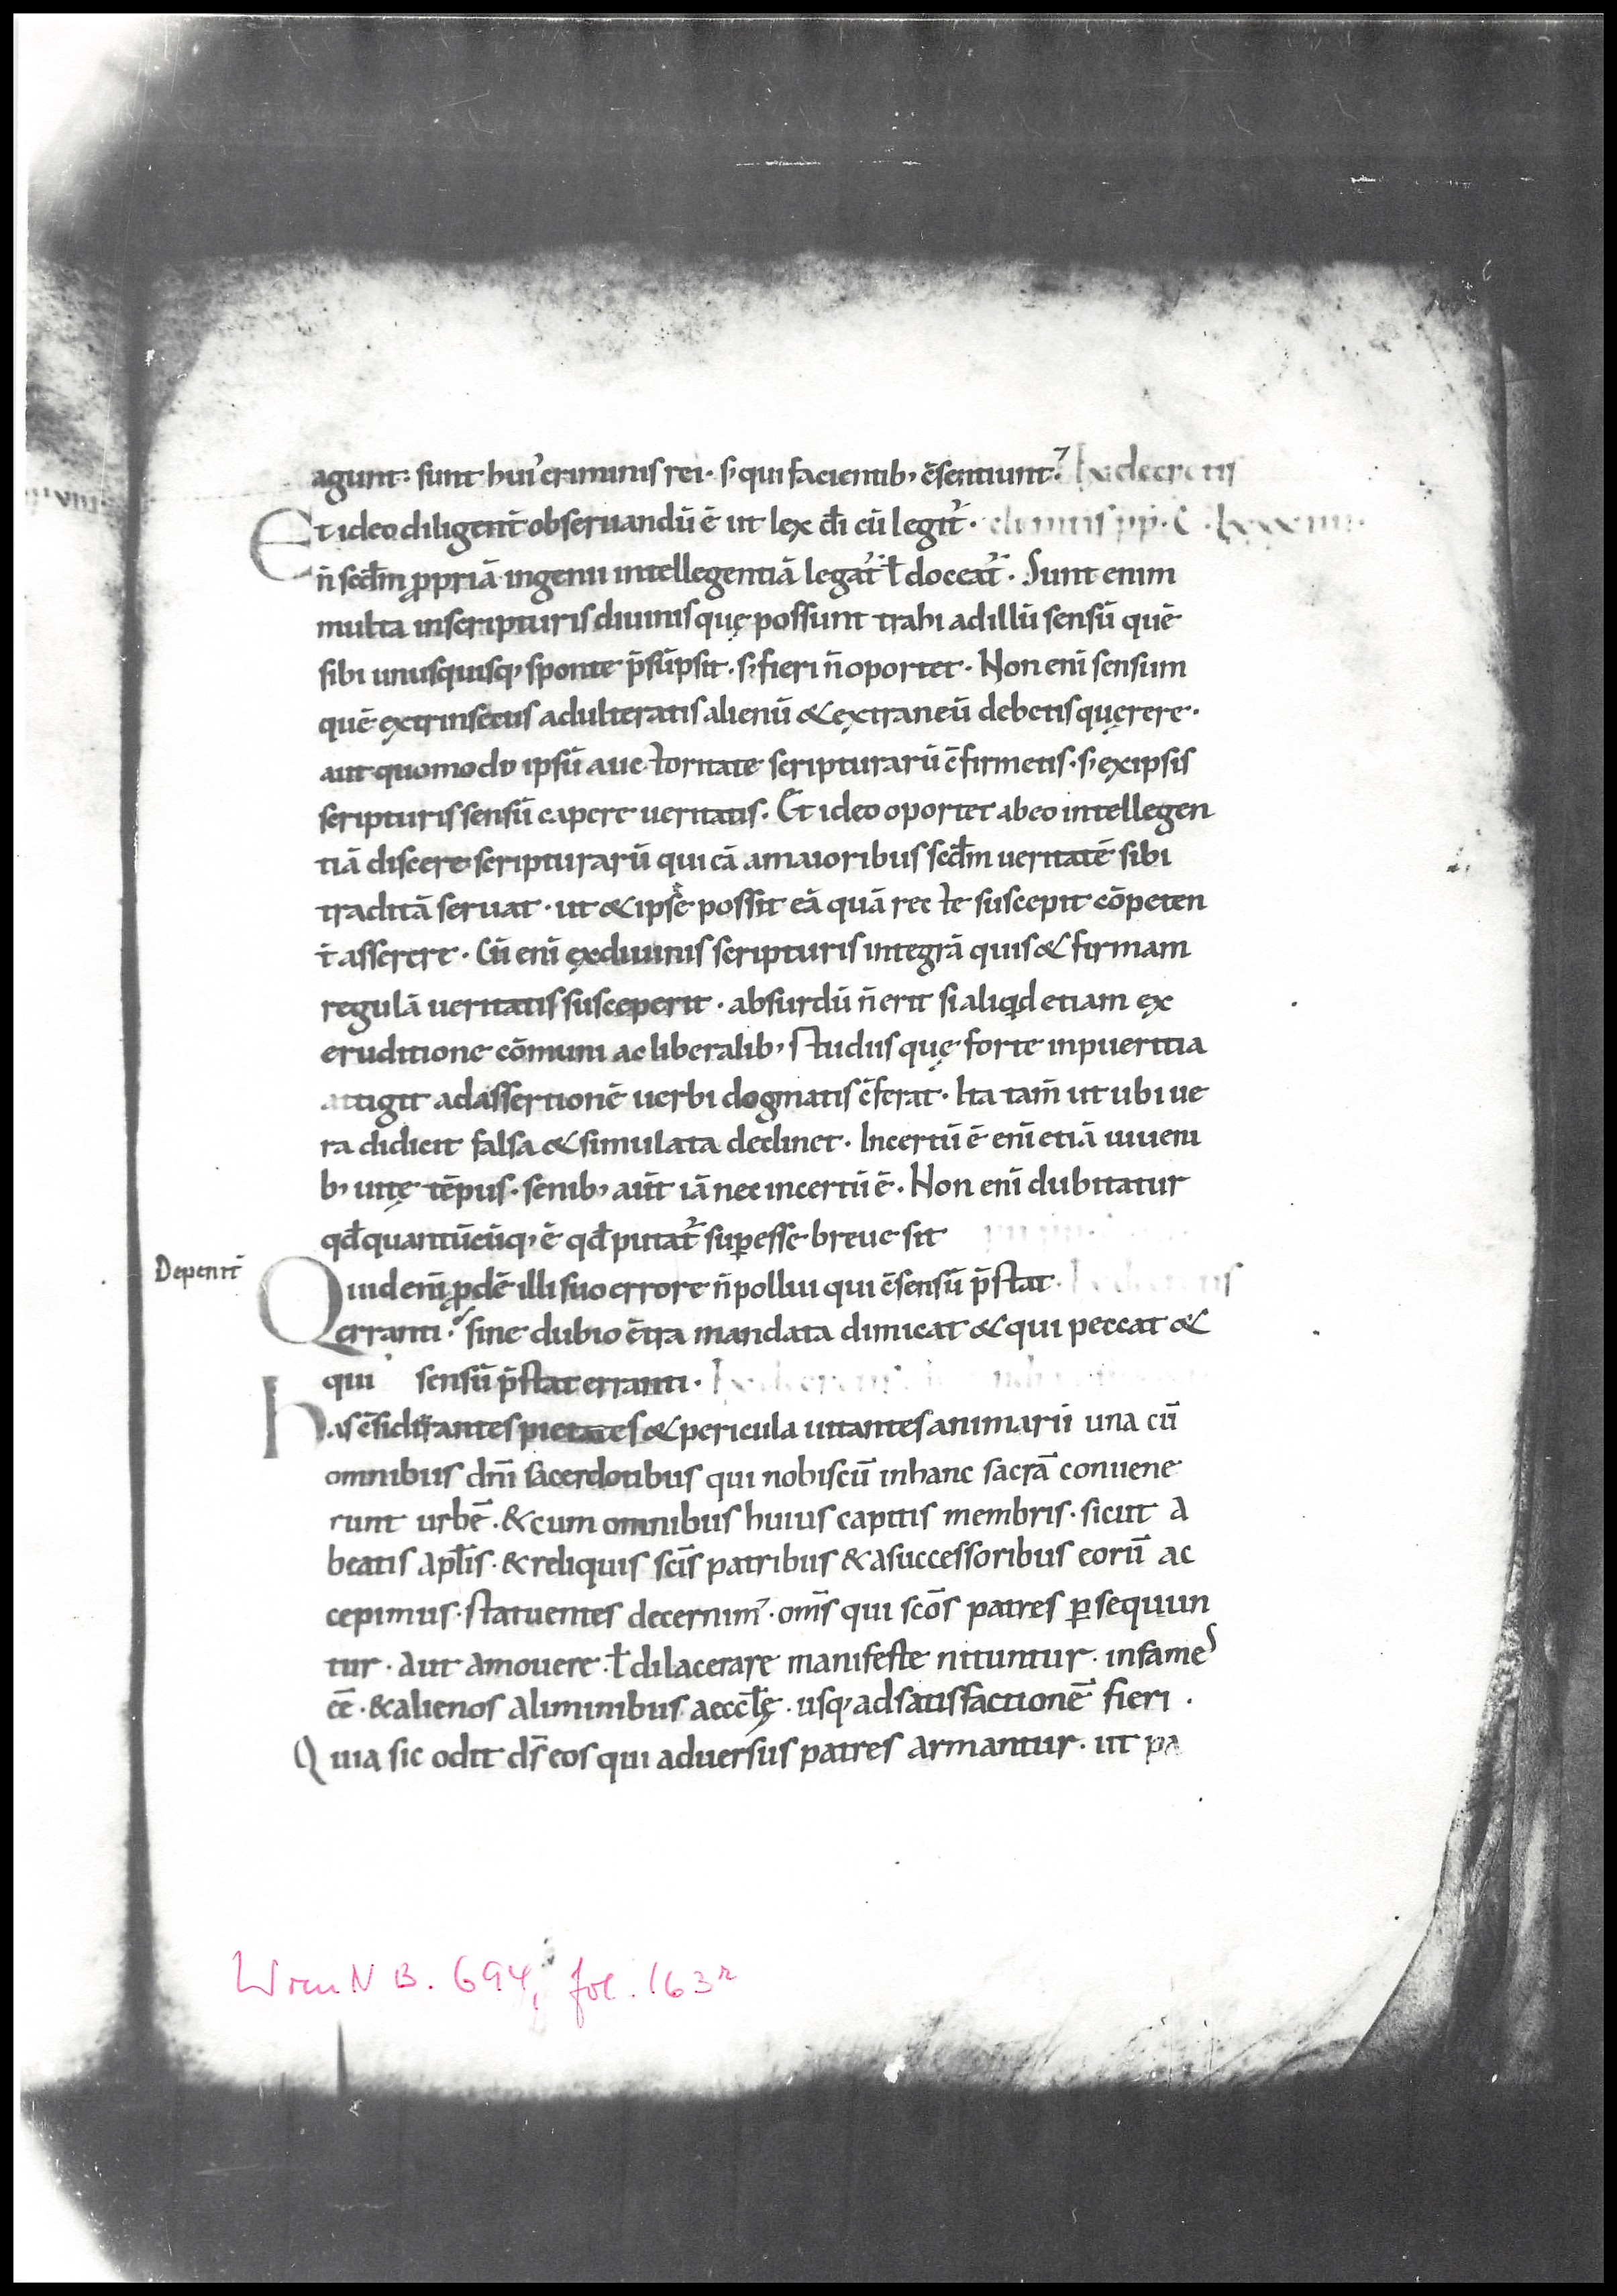 agunt: sunt hui᾽ criminis rei · s; qui facientib; c̄sentiunt. Ex decretis
Et ideo diligent̄ obseruandū ē ut lex dī cū legit᾽ · clementis pp̄ · C · lxxxiiii ·
n̄ scd̄m ꝓpriā ingenii intellegentiā legat᾽ ł doceat᾽ · Sunt enim
multa in scripturis diuinis quę possunt trahi ad illū sensū quē
sibi unusquisq; sponte p̄sūpsit · s; fieri n̄ oportet · Non enī sensum
quē extrinsecus adulteratis alienū & extraneū debetis quęrere ·
aut quomodo ipsū auctoritate scripturarū c̄firmetis · s; ex ipsis
scripturis sensū capere ueritatis · Et ideo oportet ab eo intellegen
tiā discere scripturarū qui eā a maioribus scd̄m ueritatē sibi
traditā seruat · ut & ipse possit eā quā recte suscepit cōpeten
t̄ asserere · Cū enī ex diuinis scripturis integrā quis & firmam
regulā ueritatis susceperit · absurdū n̄ erit si aliqd etiam ex
eruditione cōmuni ac liberalib; studiis quę forte in pueritia
attigit ad assertionē uerbi dogmatis c̄ferat · Ita tam̄ ut ubi ue
ra didicit falsa & simulata declinet · Incertū ē enī etiā iuueni
b; uitę tēpus · senib; aūt iā nec incertū ē · Non enī dubitatur
qd̄ quantūcūq; ē qd̄ putat᾽ suꝑesse breue sit
Depenit̄
Quid enī ꝓdē illi suo errore n̄ pollui qui c̄sensū p̄stat ·
erranti · sine dubio c̄tra mandata dimicat & qui peccat &
qui sensū p̄stat erranti ·
has c̄siderantes pietates & pericula uitantes animarū una cū
omnibus dnī sacerdotibus qui nobiscū in hanc sacrā conuene
runt urbē · & cum omnibus huius capitis membris · sicut a
beatis apłis · & reliquis scīs patribus & a successoribus eorū ac
cepimus · statuentes decernim᾽ · om̄s qui scōs patres ꝑsequun
tur · aut amouere · ł dilacerare manifeste nituntur · infames
eē · & alienos a liminibus aecclę · usq; ad satisfactionē fieri ·
Quia sic odit ds̄ eos qui aduersus patres armantur · ut pa
Wien NB. 694, fol. 163r